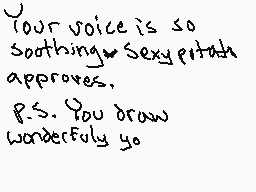 Your voice is so
soothing♥ Sexypotato
approves.
P.S. You draw
wonderfuly yo